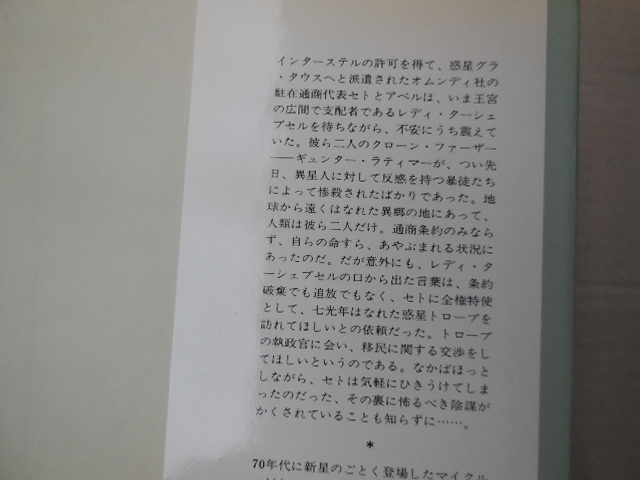 インターステルの許可を得て、惑星グラ
・タウスへと派遣されたオムンディ社の
駐在通商代表セトとアベルは、いま王宮
の広間で支配者であるレディ・ターシェ
ブセルを待ちながら、不安にうち震えて
いた。彼ら二人のクローン・ファーザー
――ギュンター・ラティマーが、つい先
日、異星人に対して反感を持つ暴徒たち
によって惨殺されたばかりであった。地
球から遠くはなれた異郷の地にあって、
人類は彼ら二人だけ。通商条約のみなら
ず、自らの命すら、あやぶまれる状況に
あったのだ。だが意外にも、レディ・タ
ーシェブセルの口から出た言葉は、条約
破棄でも追放でもなく、セトに全権特使
として、七光年はなれた惑星トロープを
訪れてほしいとの依頼だった。トロープ
の執政官に会い、移民に関する交渉をし
てほしいというのである。なかばほっと
しながら、セトは気軽にひきうけてしま
ったのだった、その裏に怖るべき陰謀が
かくされていることも知らずに……。
*
70年代に新星のごとく登場したマイクル